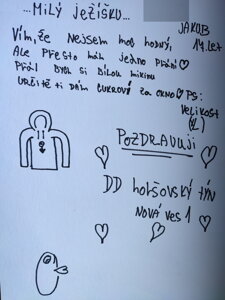 ...MILÝ JEŽÍŠKU...
JAKUB
14.let
Vím, že NEJSEM MOC HODNÝ,
Ale PŘESTO MÁM JEDNO PŘÁNÍ
PŘÁL BYCH SI BÍLOU MIKINU
URČITĚ TI DÁM CUKROVÍ ZA OKNO PS:
VELIKOST
(L)
POZDRAVUJI
DD HORŠOVSKÝ TÝN
NOVÁ VES 1